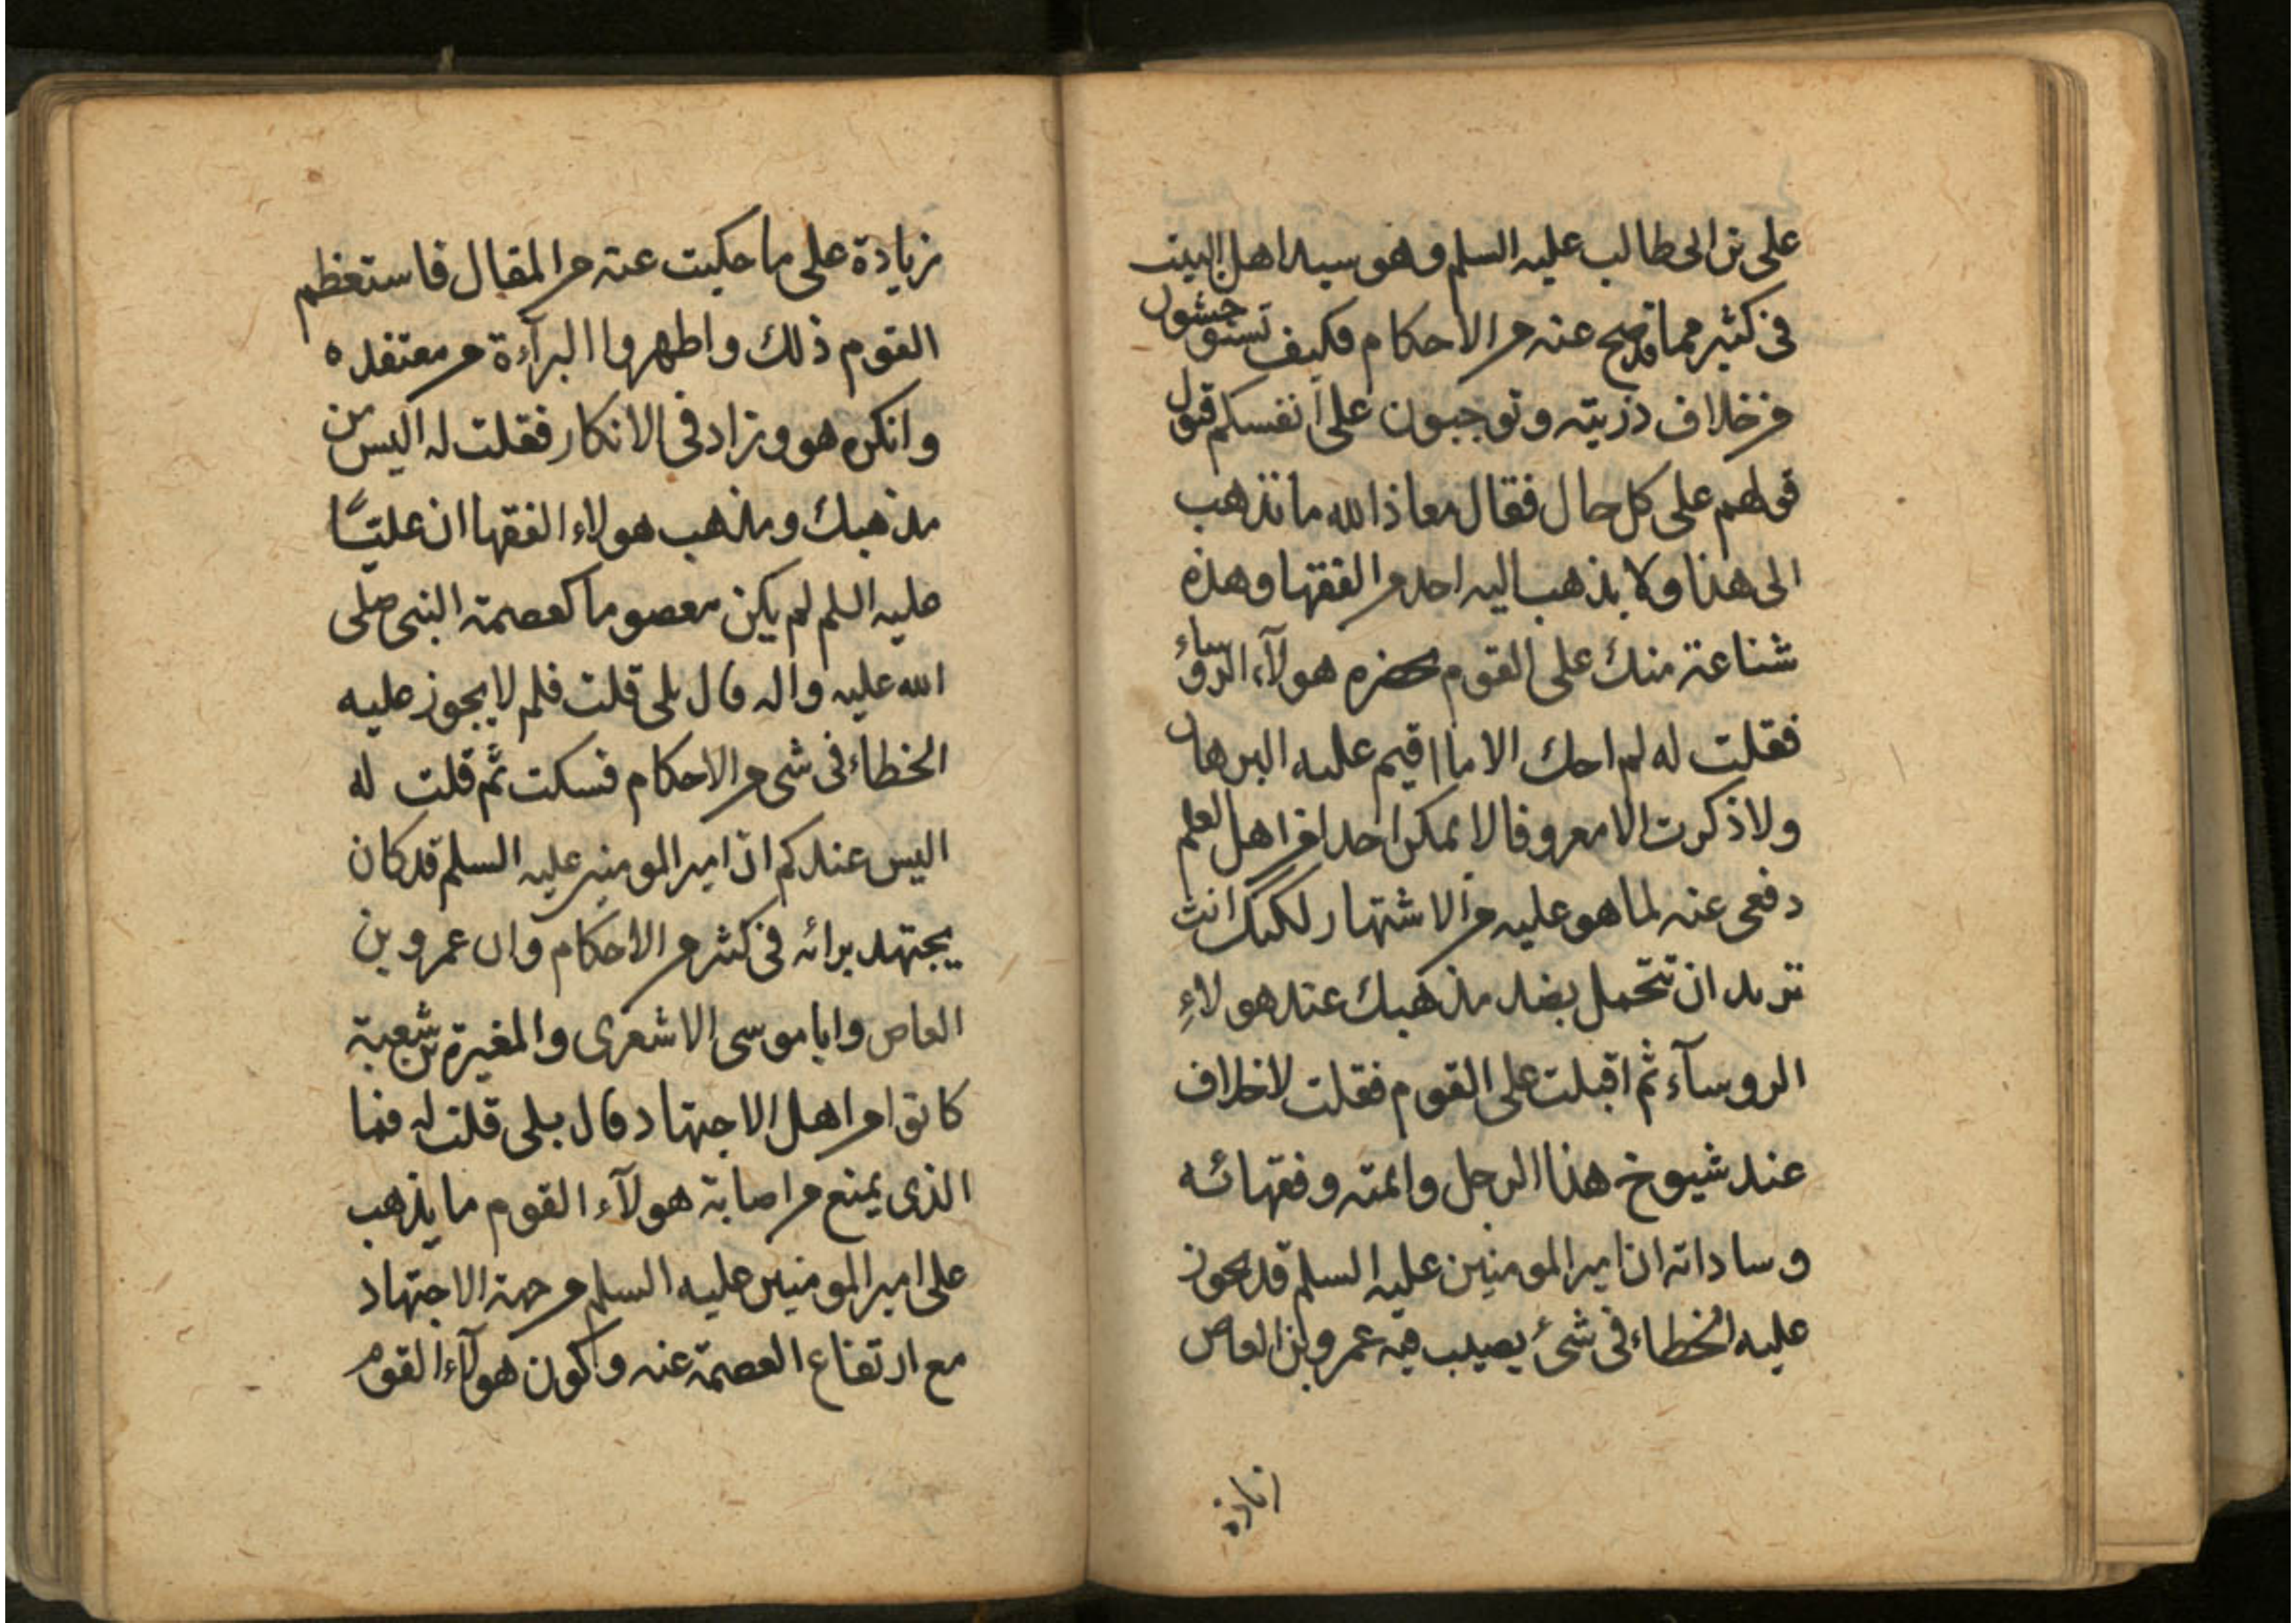 على بن ابى طالب عليه السلم وهو سيد اهل البيت
فى كثير مما قد صح عنه من الاحكام فكيف تستوحشون
من خلاف ذريته وتوجبون على أنفسكم قبول
قولهم على كل حال فقال معاذ الله ما نذهب
الى هذا ولا يذهب اليه احد من الفقها وهذه
شناعة منك على القوم بحضرة هولآء الروساء
فقلت له لم احك الا ما اقيم عليه البرهان
ولا ذكرت الا معروفا لا يمكن احدا من اهل العلم
دفعى عنه لما هو عليه من الاشتهار لكنك انت
تريد ان تتحمل بضد مذهبك عند هولاءِ
الروسآء ثم اقبلت على القوم فقلت لا خلاف
عند شيوخ هذا الرجل وائمته وفقهائه
وساداته ان امير المومنين عليه السلم قد يجوز
عليه الخطاء فى شئ يصيب فيه عمرو بن العاص
زيادة
زيادة على ما حكيت عنه من المقال فاستعظم
القوم ذلك واظهروا البرآءة من معتقده
وانكره هو وزاد فى الانكار فقلت له اليس من
مذهبك ومذهب هولاء الفقها ان عليًّا
عليه السلم لم يكن معصوما كعصمة النبى صلى
الله عليه واله قال بلى قلت فلم لا يجوز عليه
الخطاء فى شى من الاحكام فسكت ثم قلت له
اليس عندكم ان امير المومنين عليه السلم قد كان
يجتهد برائه فى كثير من الاحكام وان عمرو بن
العاص وابا موسى الاشعرى والمغيرة بن شعبة
كانوا من اهل الاجتهاد قال بلى قلت له فما
الذى يمنع من اصابة هولآء القوم ما يذهب
على امير المومنين عليه السلم من جهة الاجتهاد
مع ارتفاع العصمة عنه وكون هولآء القوم